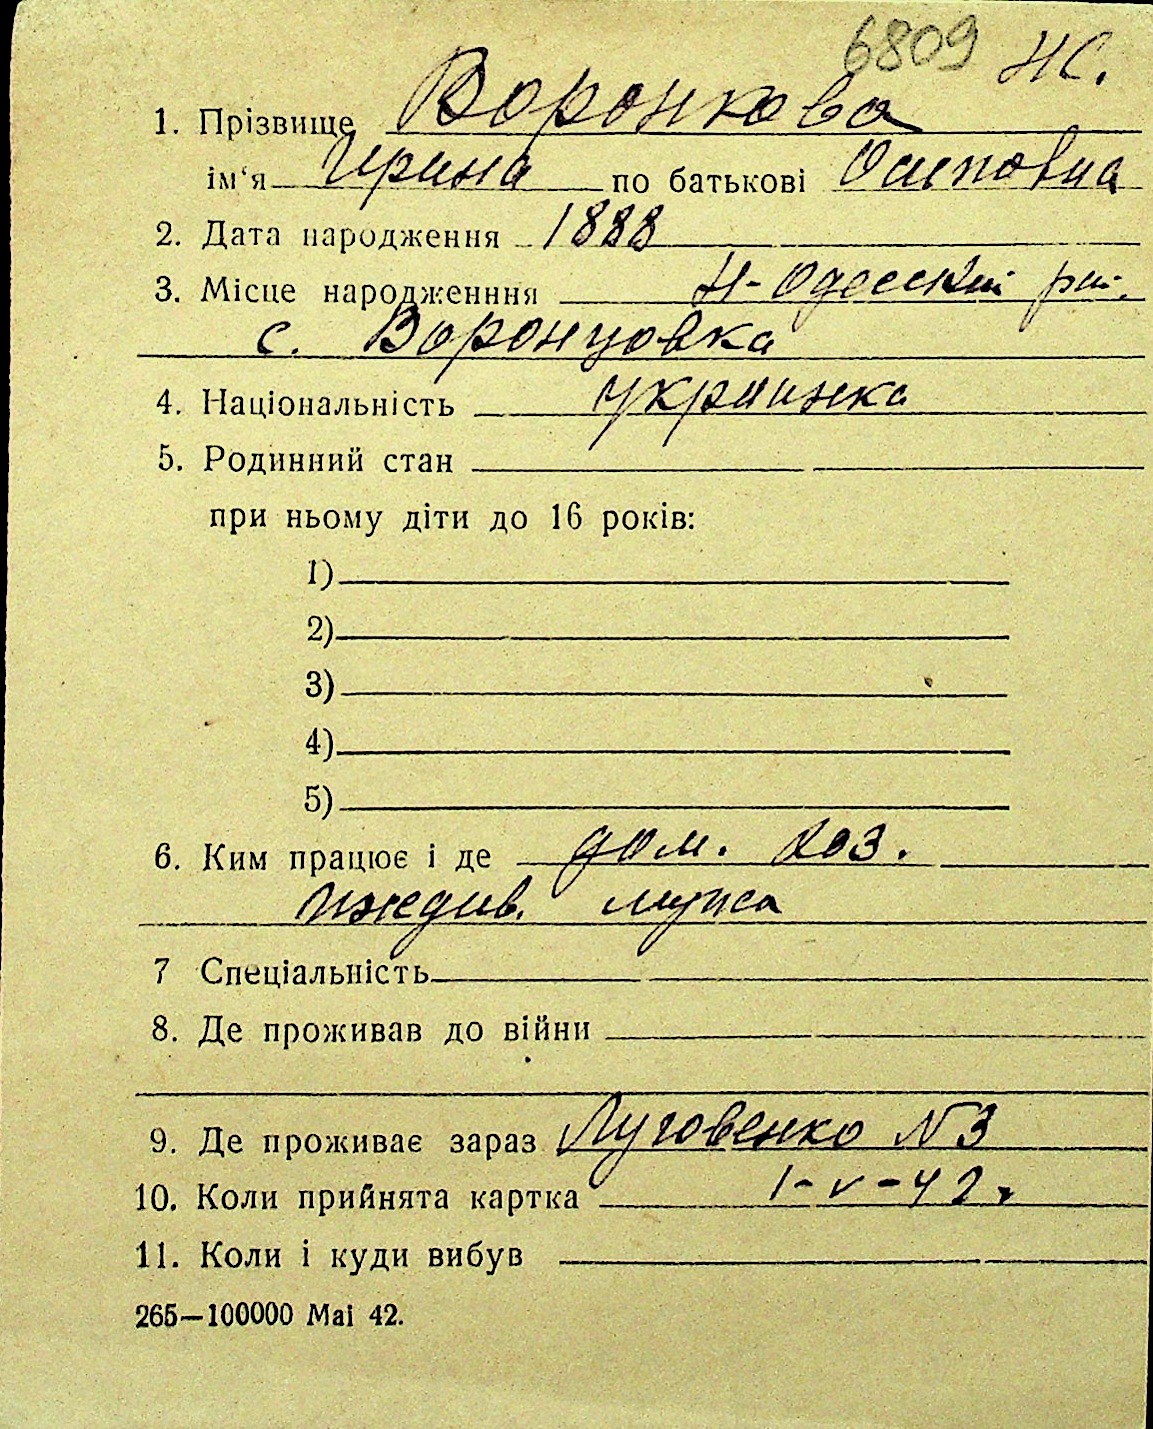 6809 Ж.
1. Прізвище Воронкова
ім‘я Ирина по батькові Осиповна
2. Дата народження 1888
3. Місце народженння Н-Одесский
с. Воронцовка
4. Національність украинка
5. Родинний стан
при ньому діти до 16 років:
1)
2)
3)
4)
5)
6. Ким працює і де дом. хоз.
иждив. мужа
7 Спеціальність
8. Де проживав до війни
9. Де проживає зараз Луговенко N3
10. Коли прийнята картка 1-V-42 г
11. Коли і куди вибув
265—100000 Mai 42.